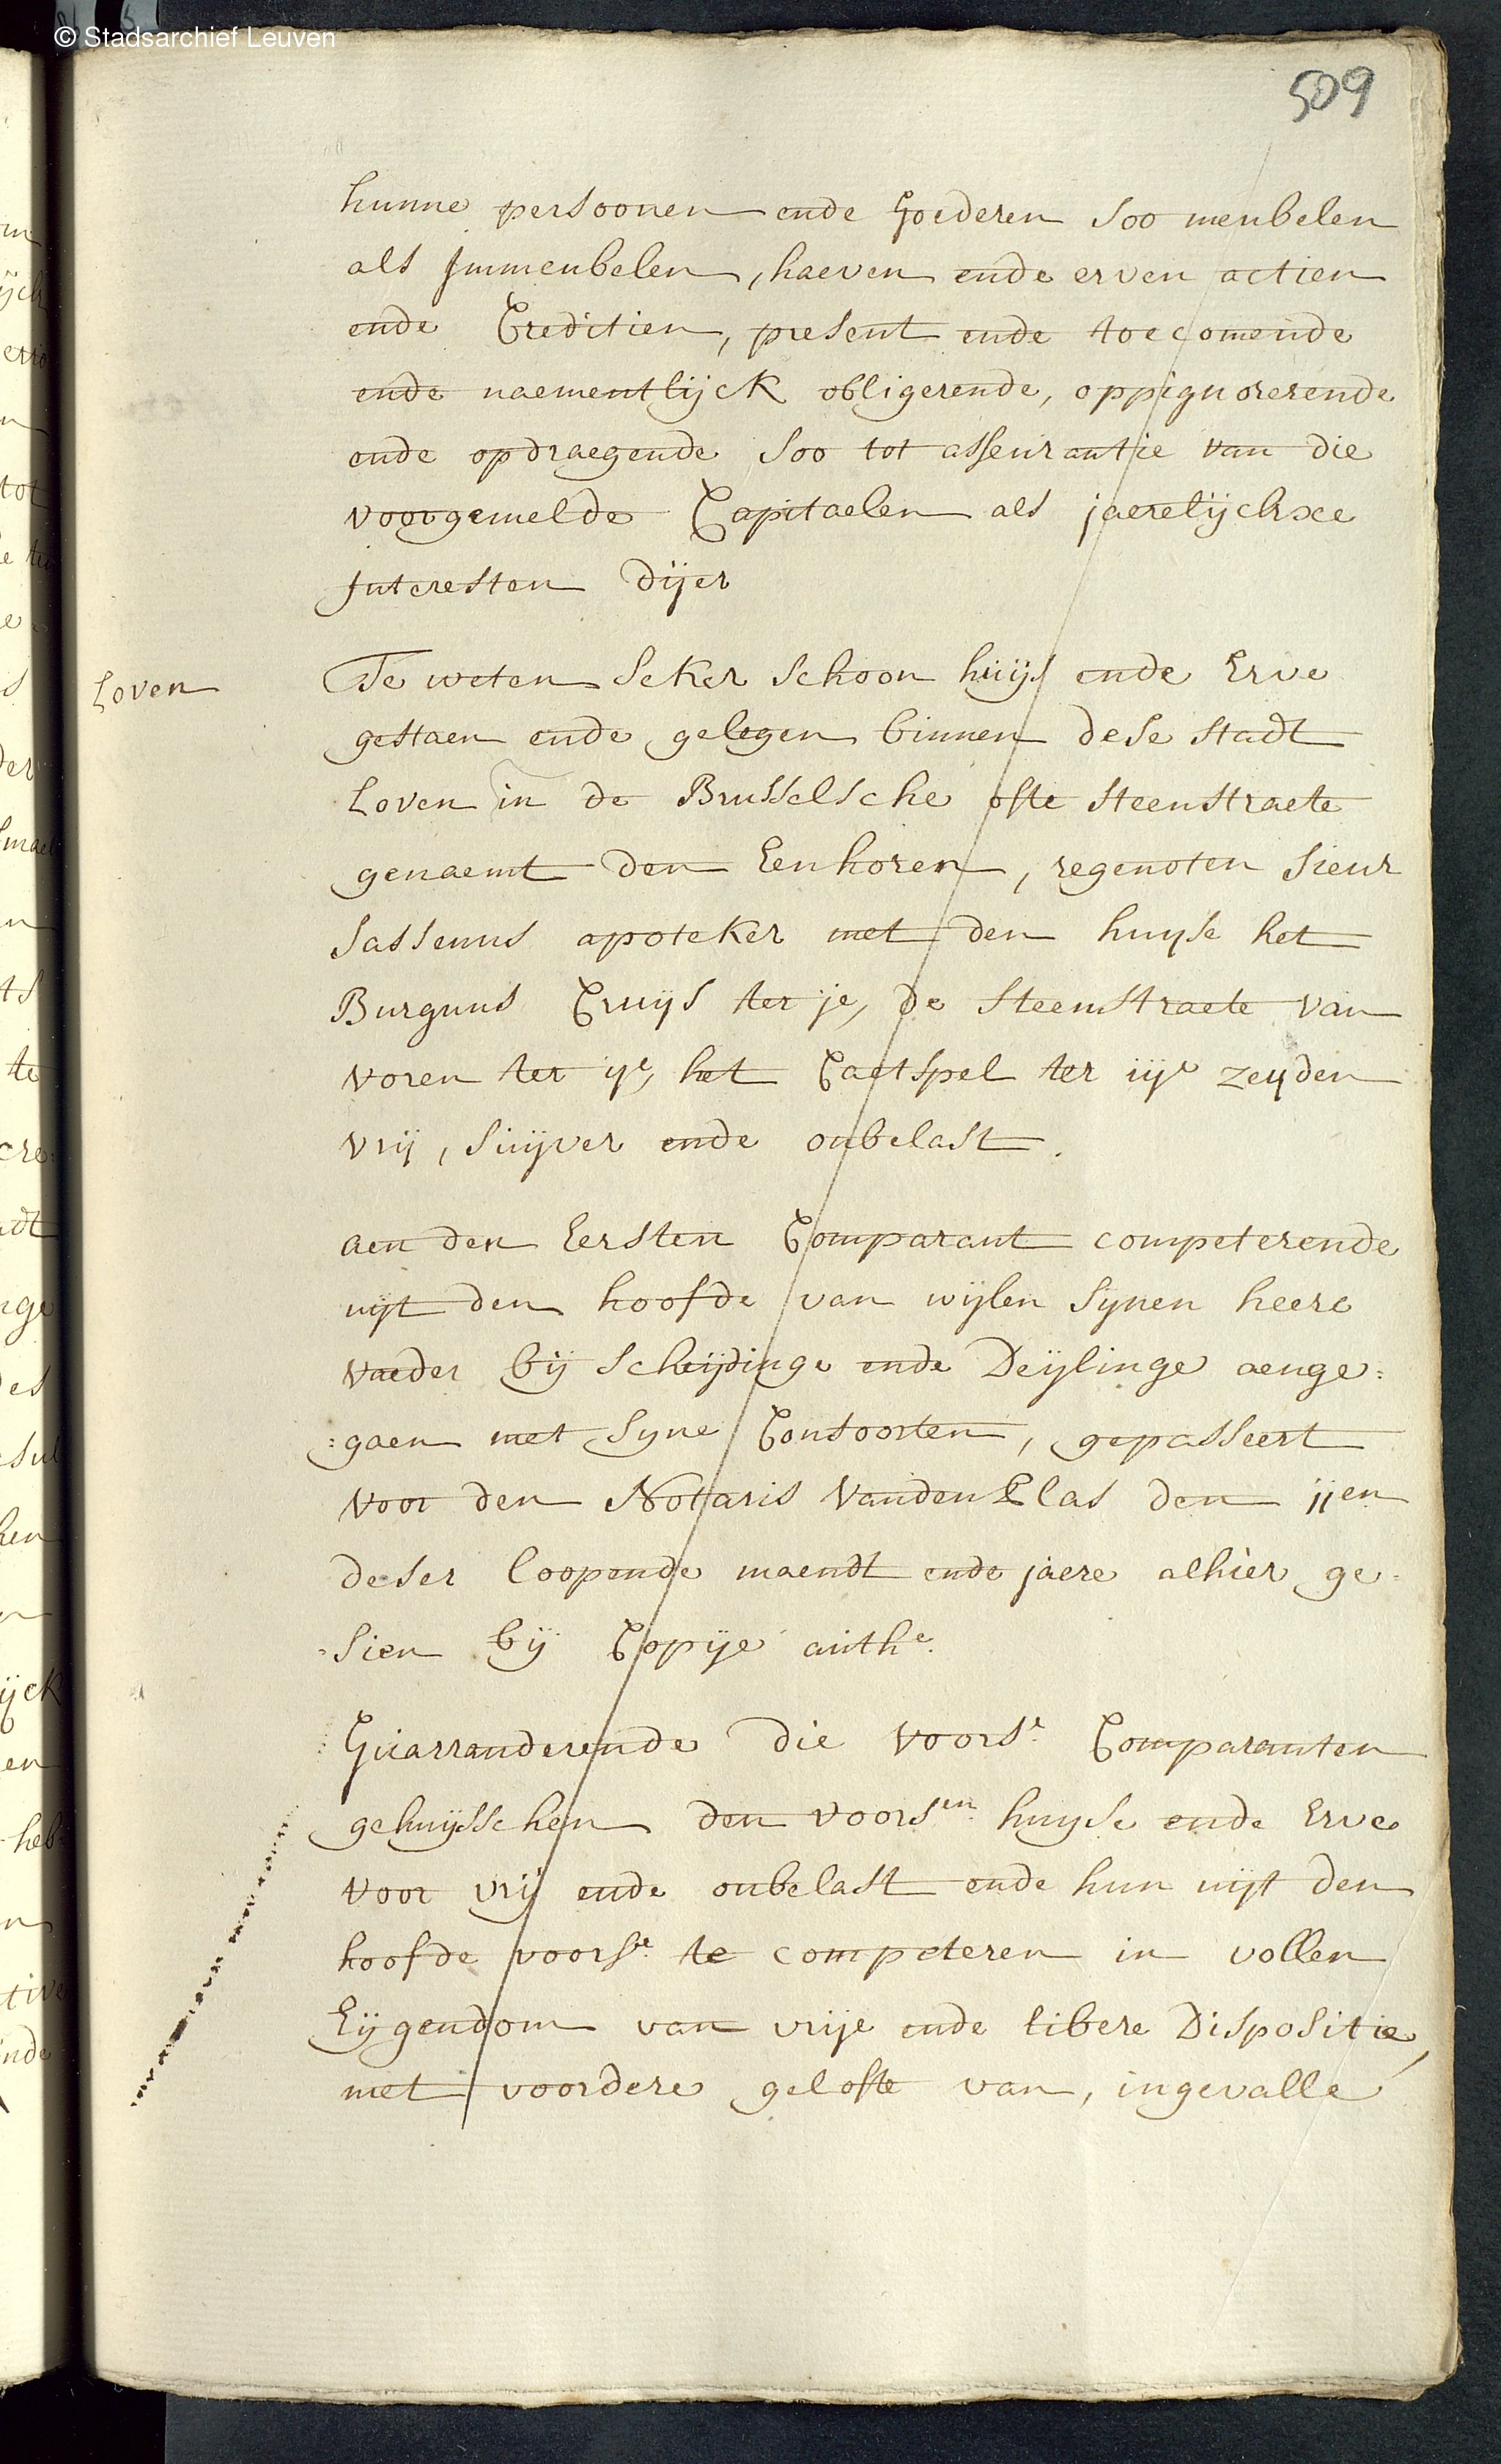 © Stadsarchief Leuven
509
hunne persoonen ende Goederen soo meubelen
als Immeubelen, haeven ende erven actien
ende Creditien, present ende toecomende
ende naementlijck obligerende, oppignorerende
ende opdraegende soo tot asseurantie van die
voorgemelde Capitaelen als jaerelijckxe
Interesten dijer
Loven
Te weten seker schoon huijs ende Erve
gestaen ende gelegen binnen dese stadt
Loven in de Brusselsche ofte steenstraete
genaemt den Eenhoren, regenoten sieur
Sassenus apoteker met den huyse het
Burguns Cruijs ter je, de steenstraete van
voren ter ije, het Caetspel ter iije zeyden
vrij, suijver ende onbelast.
aen den Eersten Comparant competerende
uijt den hoofde van wijlen synen heere
vaeder bij scheijdinge ende Deijlinge aenge:
:gaen met syne Consoorten, gepasseert
voor den Notaris Vanden Plas den 11en
deser loopende maendt ende jaere alhier ge:
:sien bij Copije auth.e
Guarranderende die voors.e Comparanten
gehuijsschen den voors.en huyse ende Erve
voor vrij ende onbelast ende hun uijt den
hoofde voors.e te competeren in vollen
Eijgendom van vrije ende libere Dispositie,
met voordere gelofte van, ingevalle